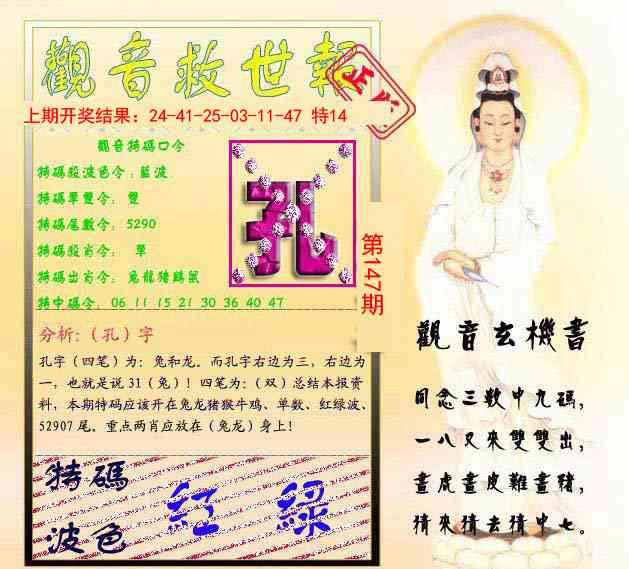 觀音救世報
正
上期开奖结果：24-41-25-03-11-47 特14
觀音特碼口令
特碼股波色令：藍波
特碼單雙令： 雙
特碼尾數令： 5290
特碼股肖令： 單
特碼出肖令： 兔龍猪鷄鼠
特中碼令：06 11 15 21 30 36 40 47
孔
第147期
分析:（孔）字
孔字（四笔）为：兔和龙。而孔字右边为三，右边为
一，也就是说 31（兔）！四笔为：（双）总结本报资
料，本期特码应该开在兔龙猪猴牛鸡、单数、红绿波、
52907 尾。重点两肖应放在（兔龙）身上！
特碼
波色
紅 綠
觀音玄機書
同念三數中九碼，
一八又來雙雙出，
畫虎畫皮難畫豬，
猜來猜去猜中七。